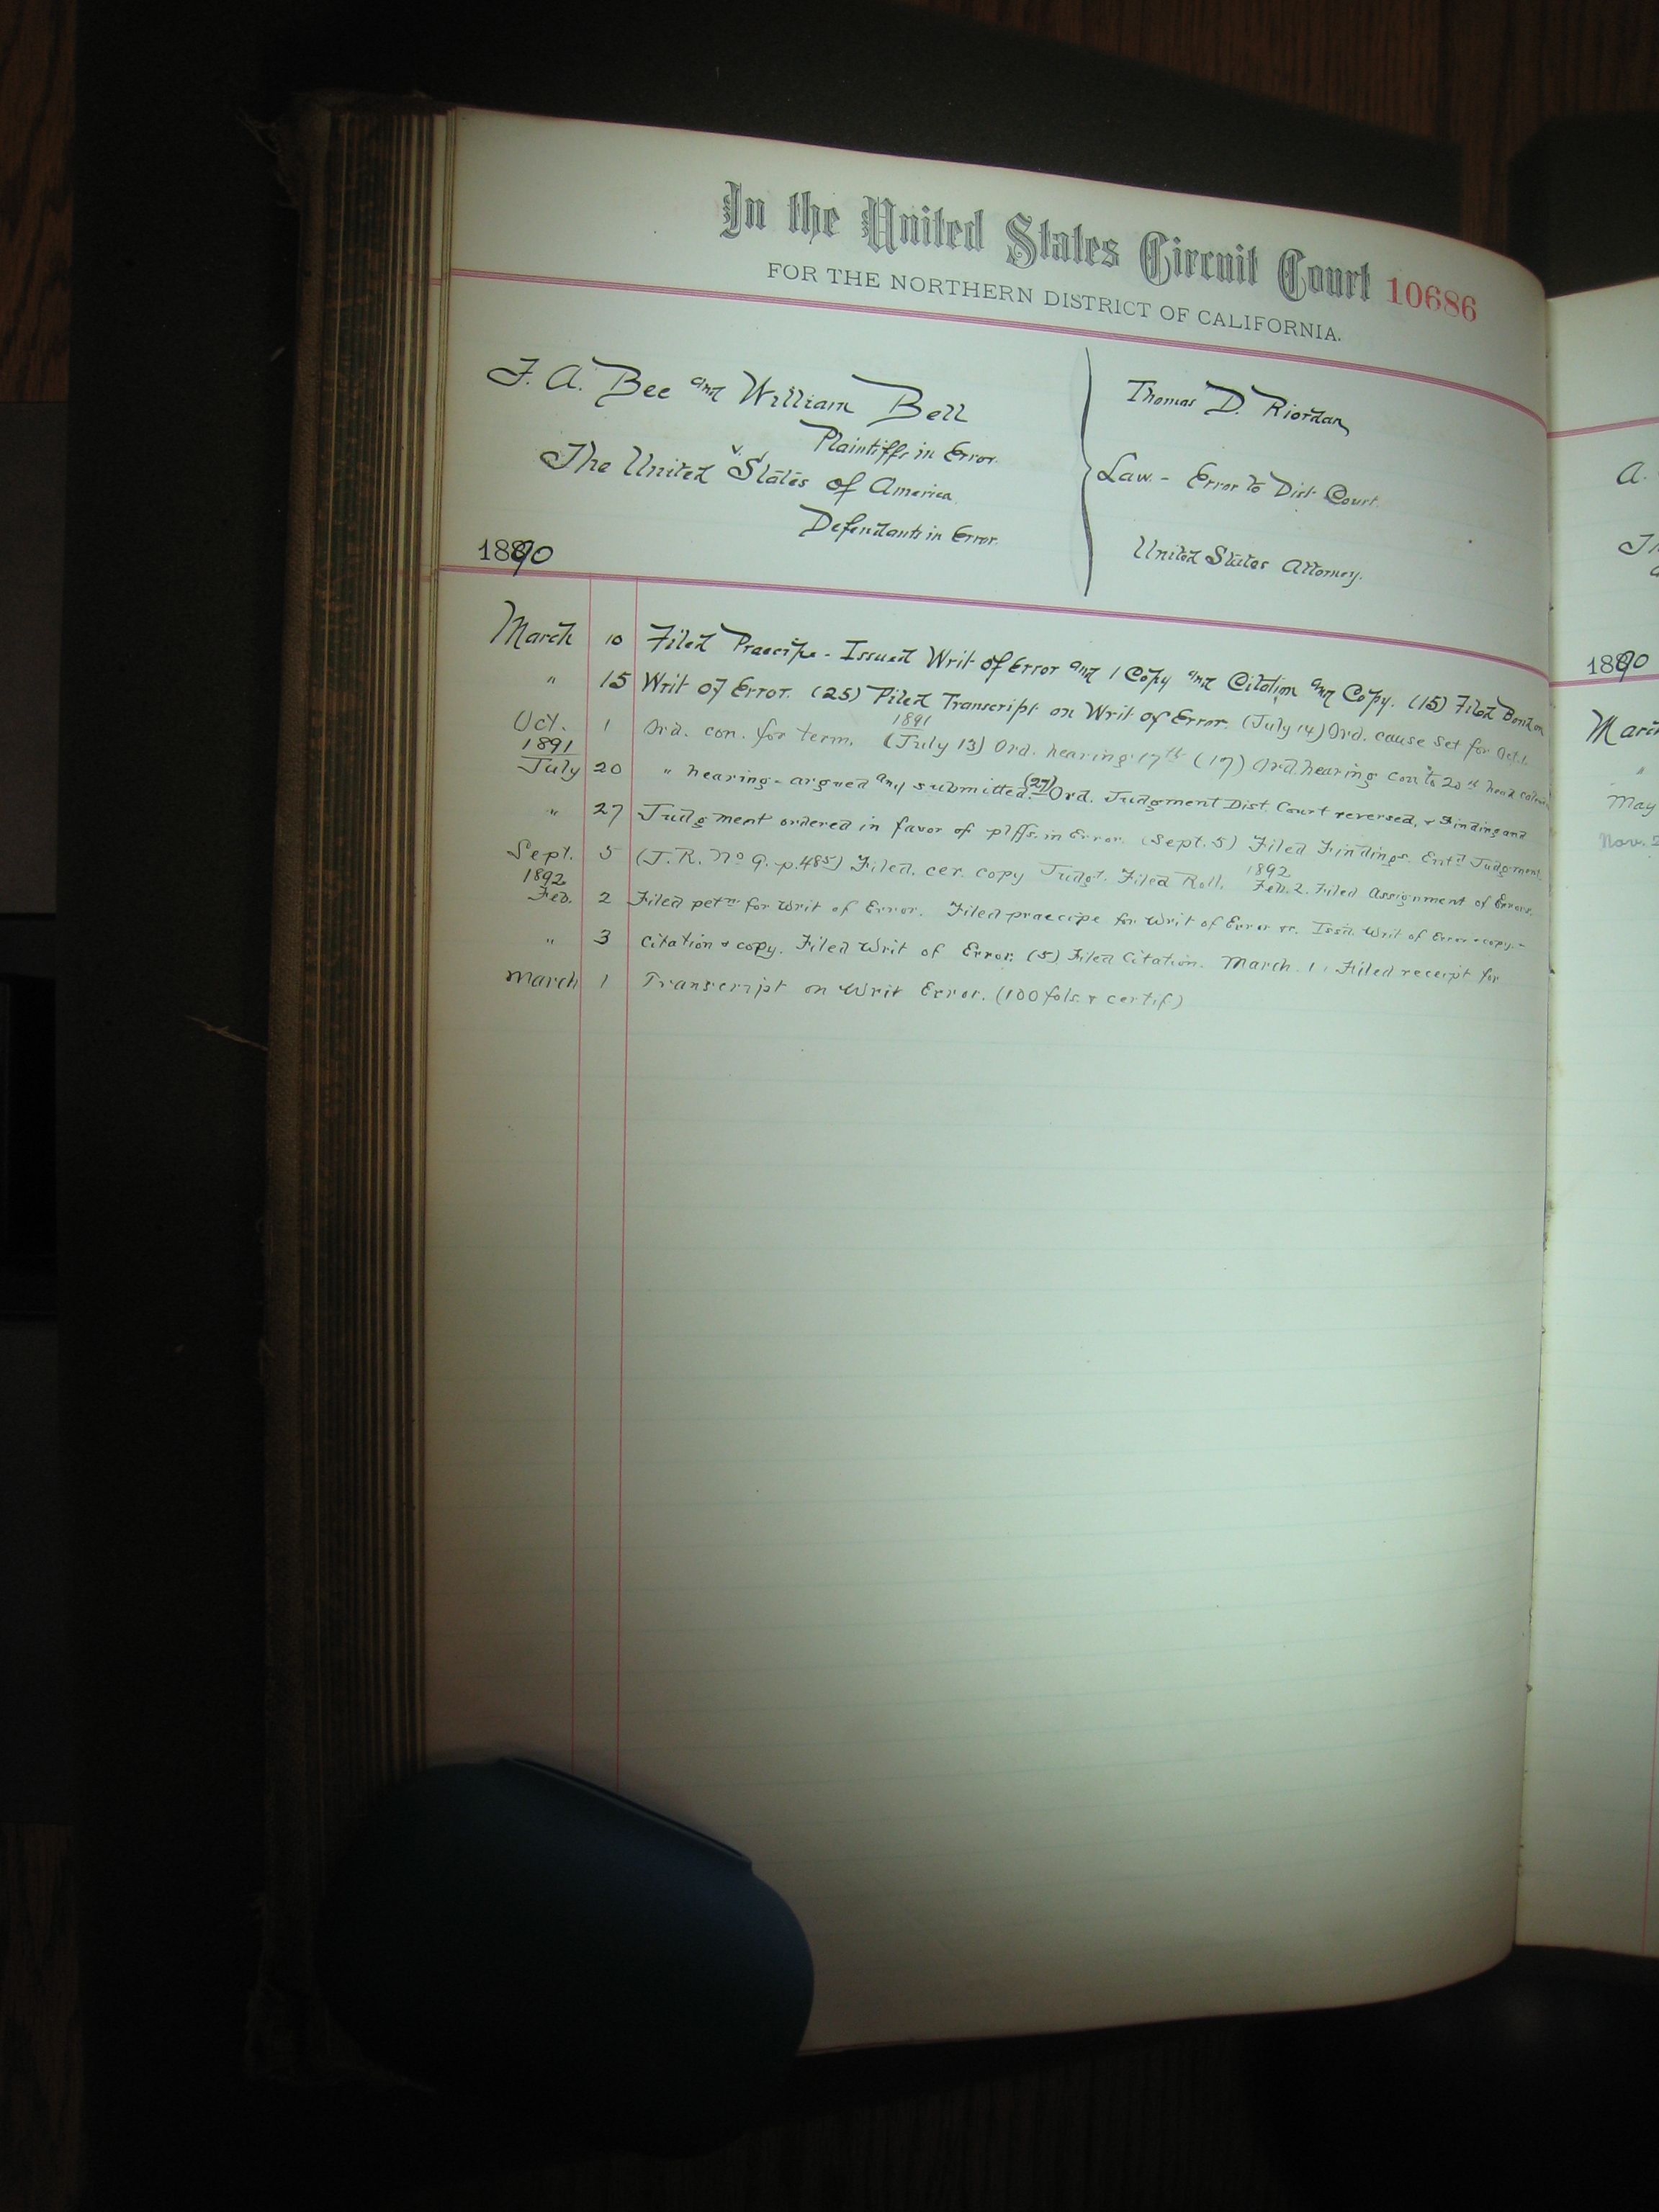 In the United States Circuit Court 10686
FOR THE NORTHERN DISTRICT OF CALIFORNIA.
F. A. Bee and William Bell
Plaintiffs in Error.
vs
The United States of America
Defendants in Error.
Thomas D. Riordan
Law. - Error to Dist. Court.
United States Attorney.
1890
March 10 Filed Praecipe - Issued Writ of Error and 1 Copy and Citation and Copy. (15) Filed Bond on
" 15 Writ of Error. (25) Filed Transcript on Writ of Error. (July 14) Ord. cause set for Oct. 1.
Oct. 1 Ord. con. for term. 1891 (July 13) Ord. hearing 17th (17) Ord. hearing con to 20th head calendar
1891
July 20 " hearing - argued and submitted. (27) Ord. Judgment Dist. Court reversed, & Finding and
" 27 Judgment ordered in favor of plffs. in Error. (Sept. 5) Filed Findings. Entd Judgment.
Sept. 5 (J. R. No 9. p. 485) Filed. cer. copy Judgt. Filed Roll. 1892 Feb. 2. Filed Assignment of Errors.
1892
Feb. 2 Filed petn for Writ of Error. Filed praecipe for Writ of Error &c. Issd. Writ of Error & copy. -
" 3 Citation & copy. Filed Writ of Error. (5) Filed Citation. March. 1. Filed receipt for
March 1 Transcript on Writ Error. (100 fols. & certif)
A.
1890
"
May
Nov.